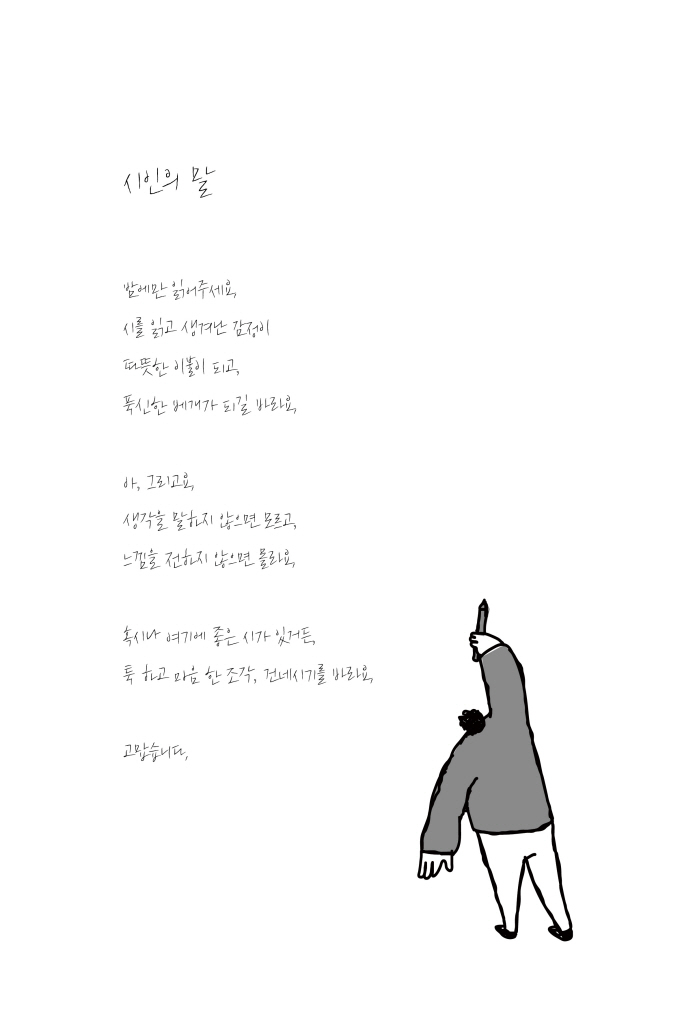 시인의 말
밤에만 읽어주세요.
시를 읽고 생겨난 감정이
따뜻한 이불이 되고,
푹신한 베개가 되길 바라요.
아, 그리고요.
생각을 말하지 않으면 모르고,
느낌을 전하지 않으면 몰라요.
혹시나 여기에 좋은 시가 있거든,
툭 하고 마음 한 조각, 건네시기를 바라요.
고맙습니다.